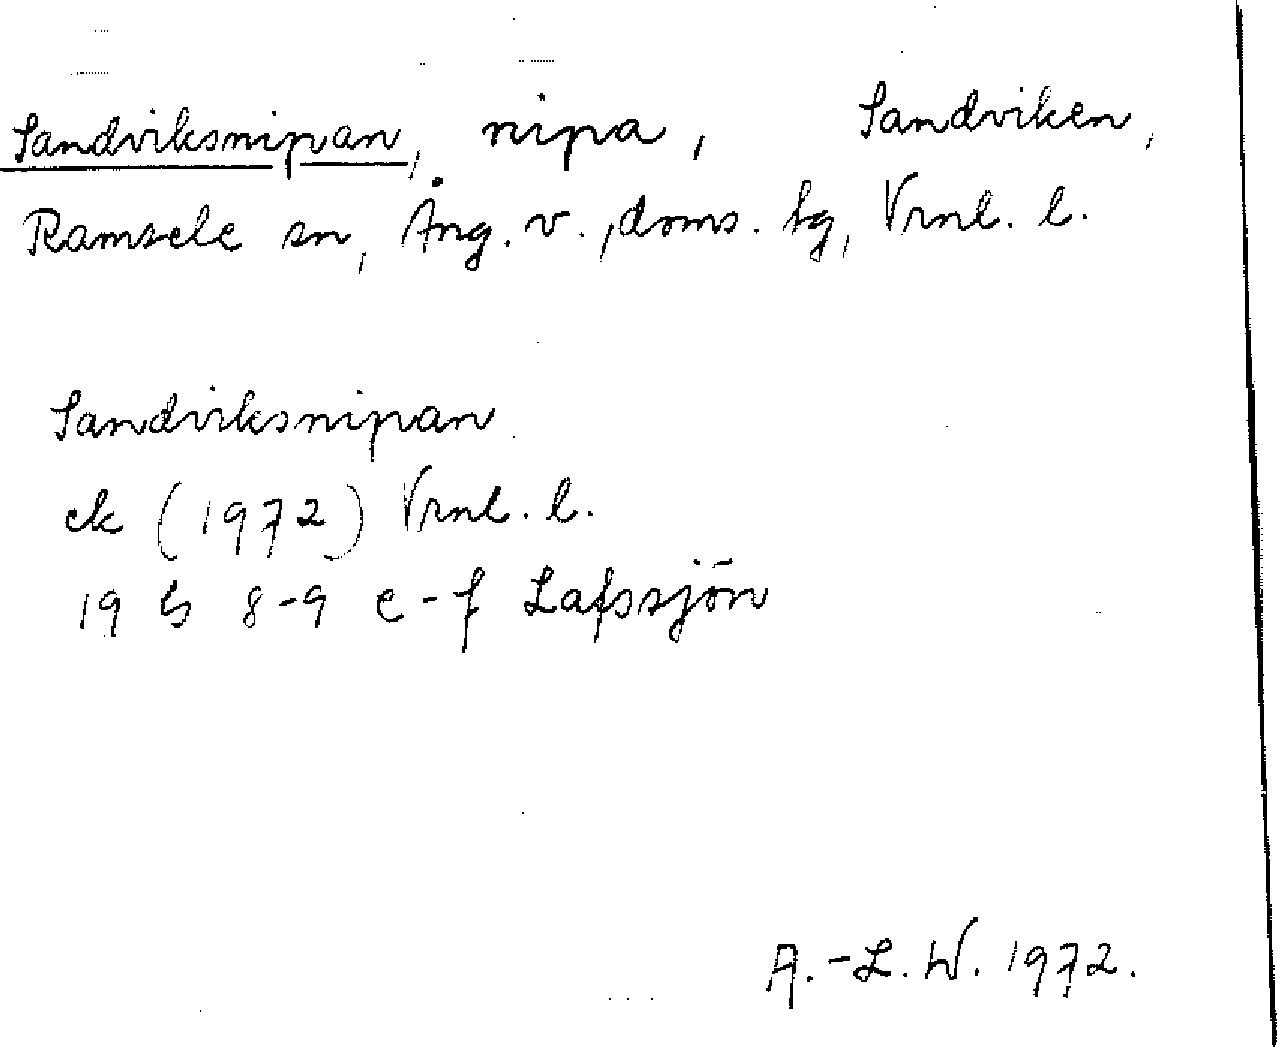 Sandviksnipan, nipa, Sandviken,
Ramsele sn, Ång. v., doms. tg, Vrnl. l.
Sandviksnipan
ek (1972) Vrnl. l.
19 G 8-9 e-f Lafssjön
A.-L. W. 1972.